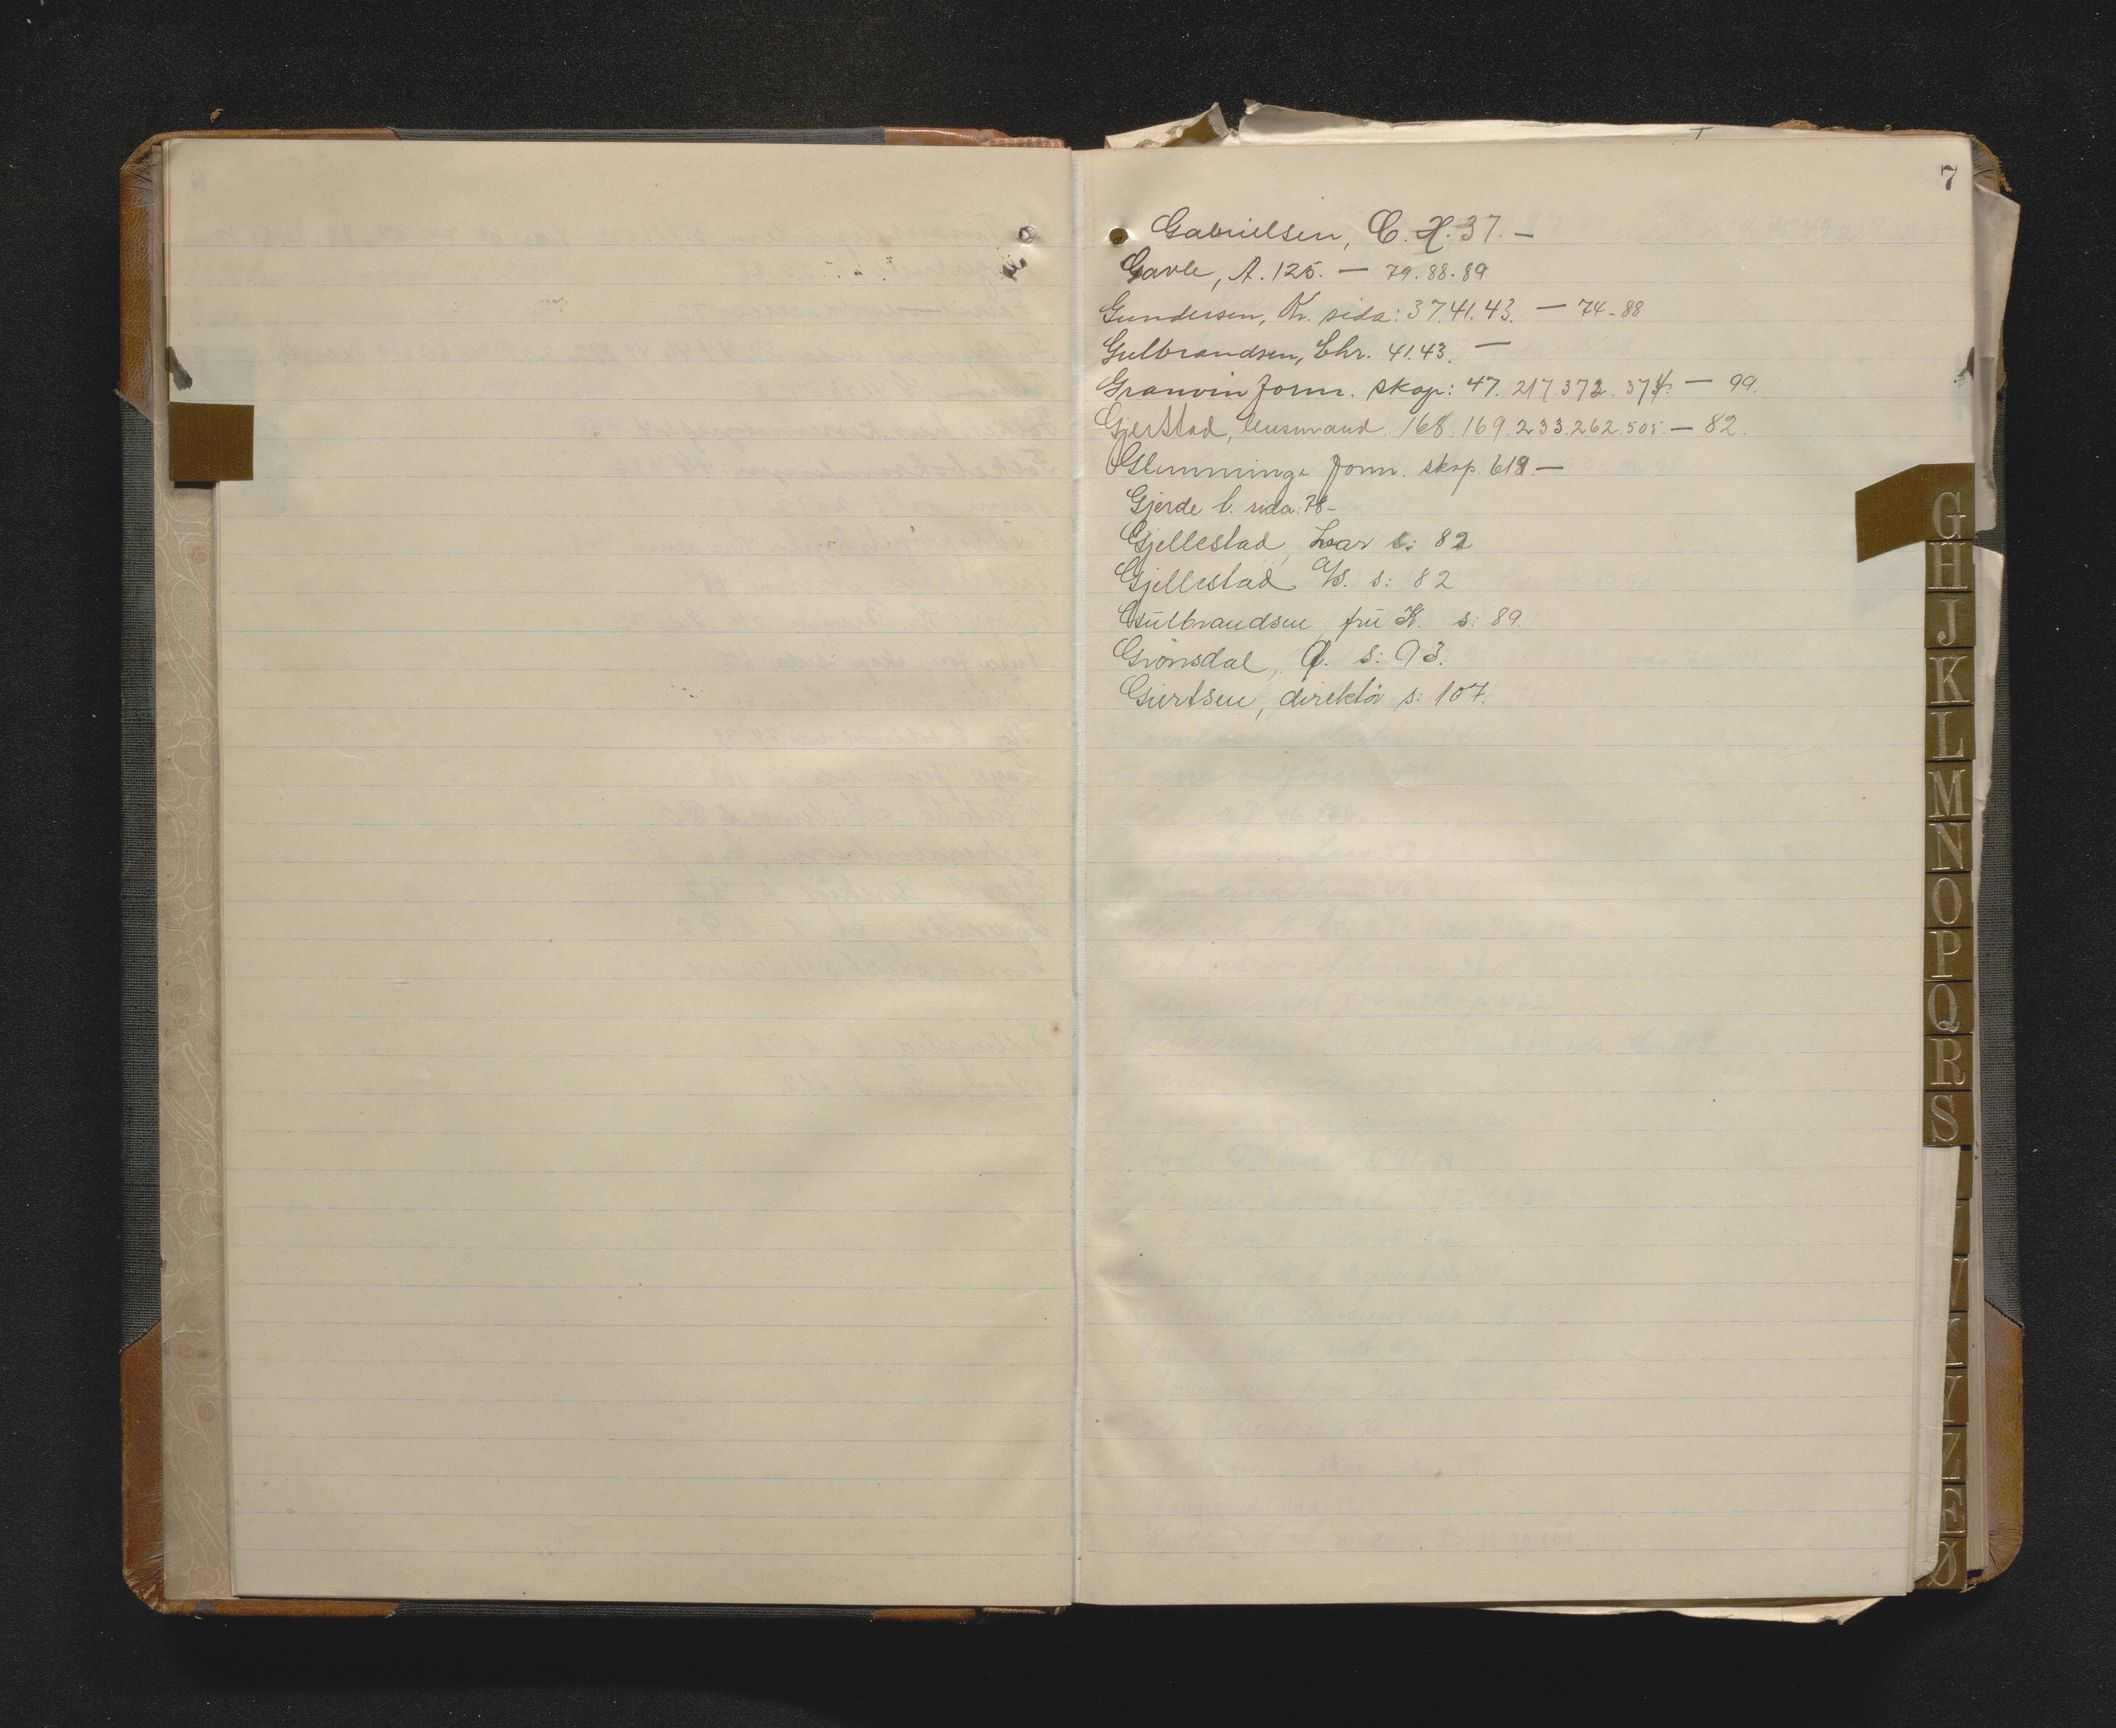 7
Gabrielsen, C. H. 37. —
Gavle, A. 125. — 79. 88. 89
Gundersen, Kr. sida: 37. 41. 43. — 74. 88
Gulbrandsen, Chr. 41. 43. —
Granvin form. skap: 47. 217. 372. 374. — 99.
Gjerstad, lensmand. 168. 169. 233. 262. 505. — 82.
Glemminge form. skap. 618. —
Gjerde b. sida: 78 -
Gjellestad, Lar s: 82
Gjellestad s: 82
Gulbrandsen, frü K. s: 89.
Grönsdal, O. s: 93.
Giertsen, direktör s: 107.
G
H
J
K
L
M
N
O
P
Q
R
S
V
X
Y
Z
Æ
Ø